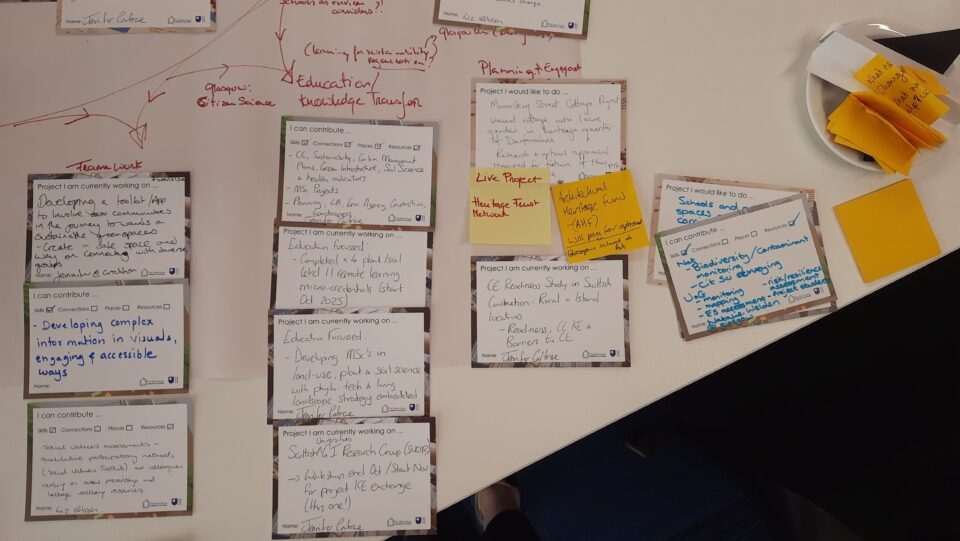 Name: Jennifer Cartrae
schools as environ
considers?!
Name: Liz Robson
(learning for sustainability
regeneration!
Glasgow:
Citizen Science
Education/
knowledge Transfer
Planning + Engagement
Framework
Project I am currently working on ...
Developing a toolkit/App
to involve communities
in the journey towards
sustainable greenspaces
- Create a safe space and
way on connecting with diverse
groups
Name: Jennifer
I can contribute ...
Skills Connections Places Resources
- Developing complex
information in visuals,
engaging & accessible
ways
Name:
I can contribute ...
Skills Connections Places Resources
Social values assessments -
qualitative participatory methods
(Social Values Toolkit) and colleagues
working on social prescribing and
heritage wellbeing resources.
Name: Liz Robson
I can contribute ...
Skills Connections Places Resources
- CE, Sustainability, Carbon Management
Plans, Green Infrastructure, Soil Science
& health indicators
- MSc Projects
- Planning, LA, Env. Agency, Construction,
Name: Jennifer Cartrae
Project I am currently working on ...
Education focused
- Completed x 4 plant/soil
level 11 remote learning
micro-credentials (start
Oct. 2025)
Project I am currently working on ...
Education focused.
- Developing MSc's on
land-use, plant & soil science
with phyto-tech & living
landscape strategy embedded
Name: Jennifer Cartrae
Project I am currently working on ...
Universities
Scottish G.I Research Group
→ Workshop end Oct/Start Nov
for project KE exchange
(this one!)
Name: Jennifer Cartrae
Project I would like to do ...
Monastery Street Cottage Project
vacant cottage with 1 acre
garden in heritage quarter
of Dunfermline
Research & options appraisal
required for future of this
Live Project
Heritage Trust
Network
Architectural
Heritage Fund
(AHF)
will pay for options
Glasgow school of
Art
Project I am currently working on ...
CE Readiness Study on Scottish
Construction: Rural & Island
locations
- Readiness, CE KE &
Barriers to CE
Name: Jennifer Cartrae
Project I would like to do ...
Schools and
spaces
I can contribute ...
Skills Connections Places Resources
- Biodiversity/Contaminant
monitoring
- Cit Sci surveying
UoG
- monitoring
- mapping
- risk/resilience
assessment
- ES assessment
- Project students
Name: Natalie Welden
@ glasgow
What
Change
What